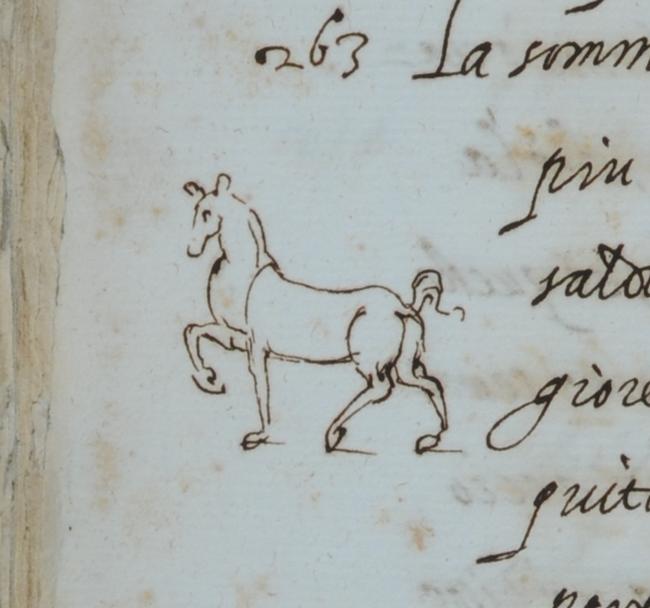 263 La somm
piu
saldo
giore
quit